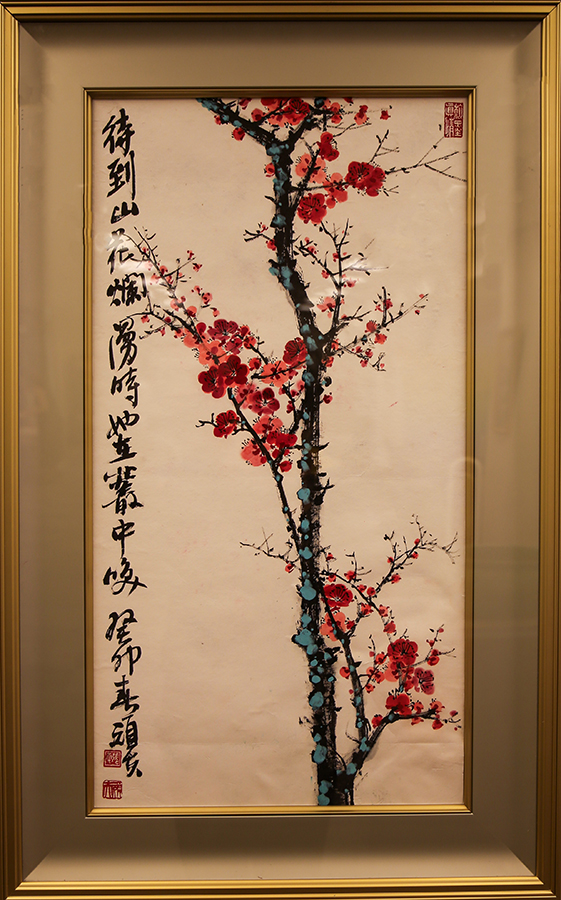 待到山花爛漫時她在叢中咲 癸卯春